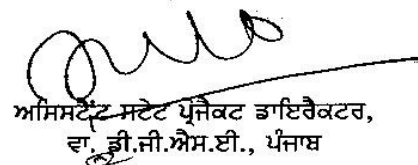 ਅਸਿਸਟੈਂਟ ਸਟੇਟ ਪ੍ਰੋਜੈਕਟ ਡਾਇਰੈਕਟਰ,
ਵਾ. ਡੀ.ਜੀ.ਐਸ.ਈ., ਪੰਜਾਬ